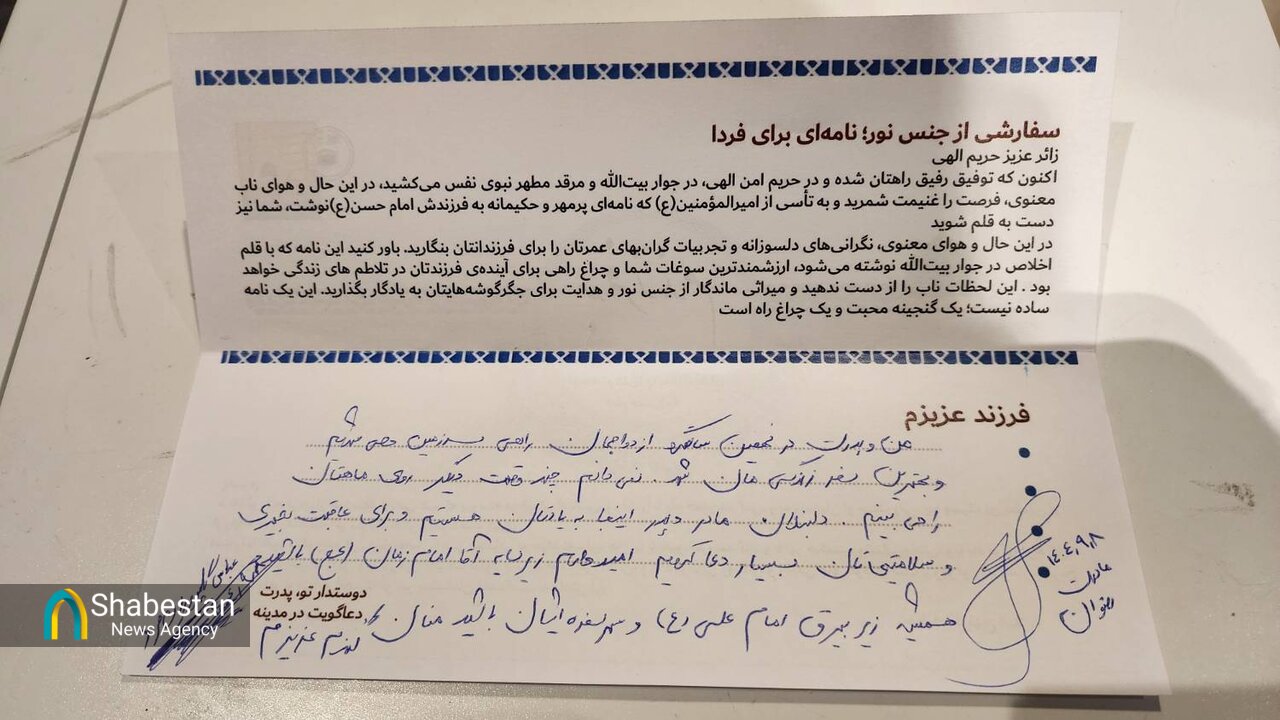 سفارشی از جنس نور؛ نامه‌ای برای فردا
زائر عزیز حریم الهی
اکنون که توفیق رفیق راهتان شده و در حریم امن الهی، در جوار بیت‌الله و مرقد مطهر نبوی نفس می‌کشید، در این حال و هوای ناب
معنوی، فرصت را غنیمت شمرید و به تأسی از امیرالمؤمنین(ع) که نامه‌ای پرمهر و حکیمانه به فرزندش امام حسن(ع)نوشت، شما نیز
دست به قلم شوید
در این حال و هوای معنوی، نگرانی‌های دلسوزانه و تجربیات گران‌بهای عمرتان را برای فرزندانتان بنگارید. باور کنید این نامه که با قلم
اخلاص در جوار بیت‌الله نوشته می‌شود، ارزشمندترین سوغات شما و چراغ راهی برای آینده‌ی فرزندتان در تلاطم های زندگی خواهد
بود . این لحظات ناب را از دست ندهید و میراثی ماندگار از جنس نور و هدایت برای جگرگوشه‌هایتان به یادگار بگذارید. این یک نامه
ساده نیست؛ یک گنجینه محبت و یک چراغ راه است
فرزند عزیزم
من و پدرت در سالگرد ازدواجمان راهی سرزمین وحی شدیم
و بهترین سفر زندگی مان شد. نمی دانم چند وقت دیگر روی ماهتان
را می بینیم. دلبندان مادر و پدر اینجا به یادتان هستیم و برای عاقبت بخیری
و سلامتی تان بسیار دعا کردیم امیدوارم زیر سایه آقا امام زمان (عج) باشید
همیشه زیر بیرق امام علی (ع) و سر سفره ایشان باشید
عزیزم
۱۴۰۴،۹،۸
مادرت
رضوان
دوستدار تو، پدرت
دعاگویت در مدینه
Shabestan
News Agency